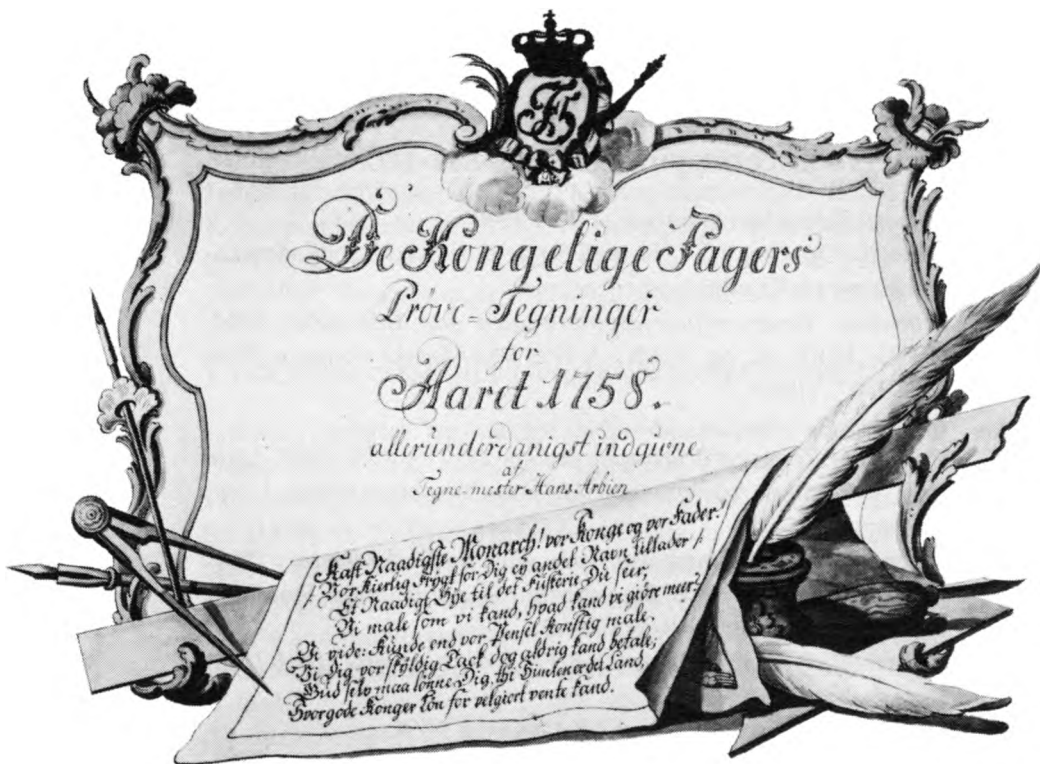 De Kongelige Pagers
Prøve-Tegninger
for
Aaret 1758.
allerunderdanigst indgivne
af
Tegne-mester Hans Arbien
Kast Naadigste Monarch! vor Konge og vor Fader!
/: Vor Kierlig Frygt for Dig ey andet Navn tillader :/
Et Naadigt Øye til det Fusterie Du seer,
Vi male som vi kand, hvad kand vi giøre meer?
Vi vide: Kunde end vor Pensel Konstig male.
Vi Dig vor skyldig Tack dog aldrig kand betale;
Gud selv maa lønne Dig, thi Himlen er det Land,
Hvor gode Konger Løn for velgiort vente kand.